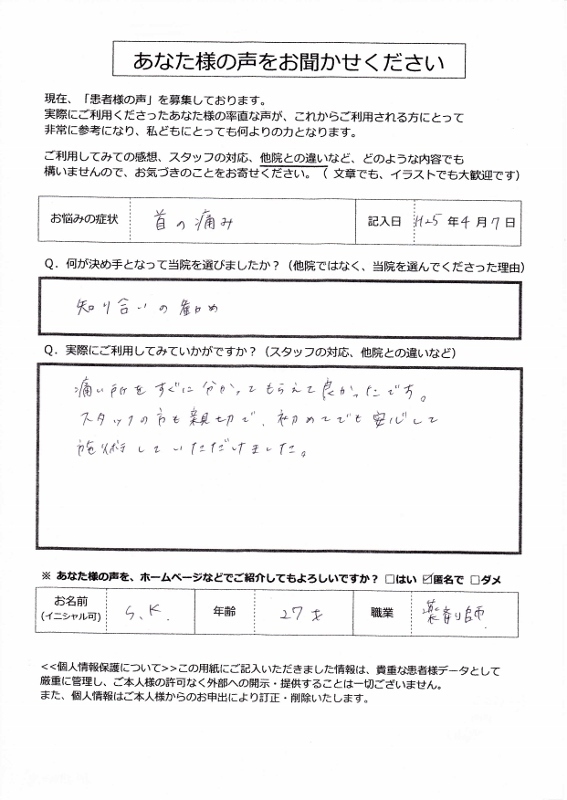 あなた様の声をお聞かせください
現在、「患者様の声」を募集しております。
実際にご利用くださったあなた様の率直な声が、これからご利用される方にとって
非常に参考になり、私どもにとっても何よりの力となります。
ご利用してみての感想、スタッフの対応、他院との違いなど、どのような内容でも
構いませんので、お気づきのことをお寄せください。（ 文章でも、イラストでも大歓迎です）
お悩みの症状 首の痛み 記入日 H25 年 4 月 7 日
Q．何が決め手となって当院を選びましたか？（他院ではなく、当院を選んでくださった理由）
知り合いの勧め
Q．実際にご利用してみていかがですか？（スタッフの対応、他院との違いなど）
痛い所をすぐに分かってもらえて良かったです。
スタッフの方も親切で、初めてでも安心して
施術していただけました。
※ あなた様の声を、ホームページなどでご紹介してもよろしいですか？ □はい ☑匿名で □ダメ
お名前 S.K. 年齢 27才 職業 薬剤師
(イニシャル可)
<<個人情報保護について>>この用紙にご記入いただきました情報は、貴重な患者様データとして
厳重に管理し、ご本人様の許可なく外部への開示・提供することは一切ございません。
また、個人情報はご本人様からのお申出により訂正・削除いたします。